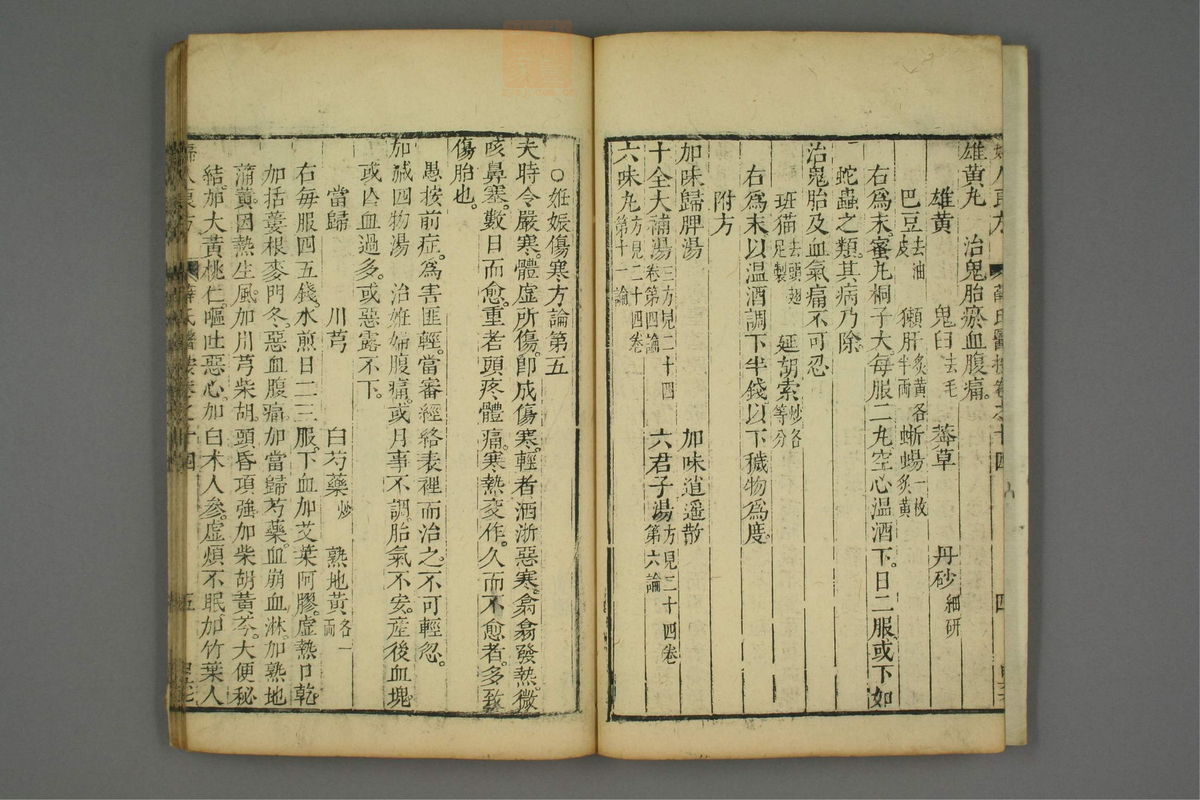 雄黄丸　治鬼胎瘀血腹痛。
雄黄　鬼臼去毛　莽草　丹砂細研
巴豆去油皮　獺肝炙黄各半兩　蜥蜴一枚炙黄
右爲末。蜜丸桐子大。每服二丸空心温酒下。日二服。或下如
蛇蟲之類。其病乃除。
治鬼胎及血氣痛不可忍
班猫去頭翅足製　延胡索炒各等分
右爲末以温酒調下半錢。以下穢物爲度。
附方
加味歸脾湯　加味逍遥散
十全大補湯三方見二十四卷第四論　六君子湯方見二十四卷第六論
六味丸方見二十四卷第十一論
○妊娠傷寒方論第五
夫時令嚴寒。體虚所傷。卽成傷寒。輕者洒淅惡寒。翕翕發熱。微
咳鼻塞。數日而愈。重者頭疼體痛。寒熱交作。久而不愈者。多致
傷胎也。
愚按前症。爲害匪輕。當審經絡表裡而治之。不可輕忽。
加减四物湯　治姙婦腹痛。或月事不調。胎氣不安。産後血塊。
或亡血過多。或惡露不下。
當歸　川芎　白芍藥炒　熟地黄各一兩
右每服四五錢。水煎日二三服。下血加艾葉阿膠。虚熱口乾
加括蔞根麥門冬。惡血腹痛。加當歸芍藥。血崩血淋。加熟地
蒲黄。因熱生風。加川芎柴胡。頭昏項強加柴胡黄芩。大便秘
結。加大黄桃仁。嘔吐惡心。加白术人參。虚煩不眠。加竹葉人
婦人良方　薛氏醫按卷之十四　五